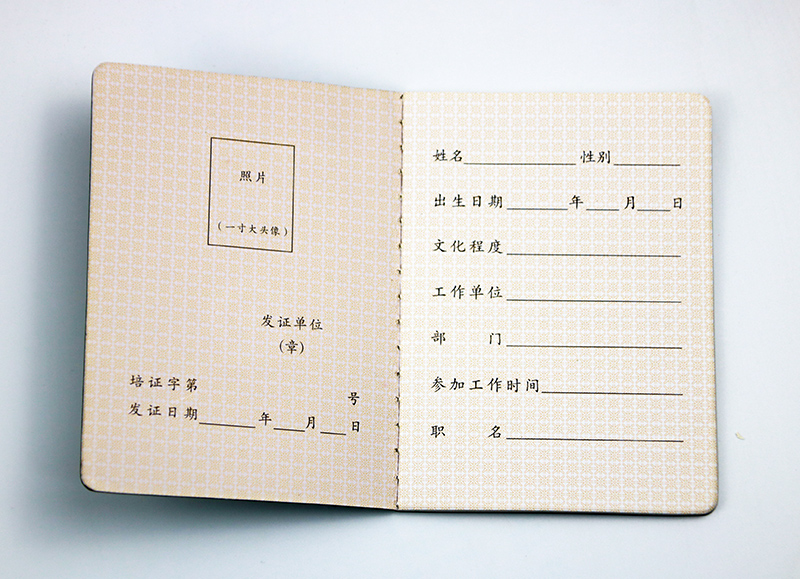 照片
（一寸大头像）
发证单位
（章）
培证字第 号
发证日期______年___月___日
姓名___________性别_______
出生日期______年___月___日
文化程度_________________
工作单位_________________
部 门_________________
参加工作时间______________
职 名_________________